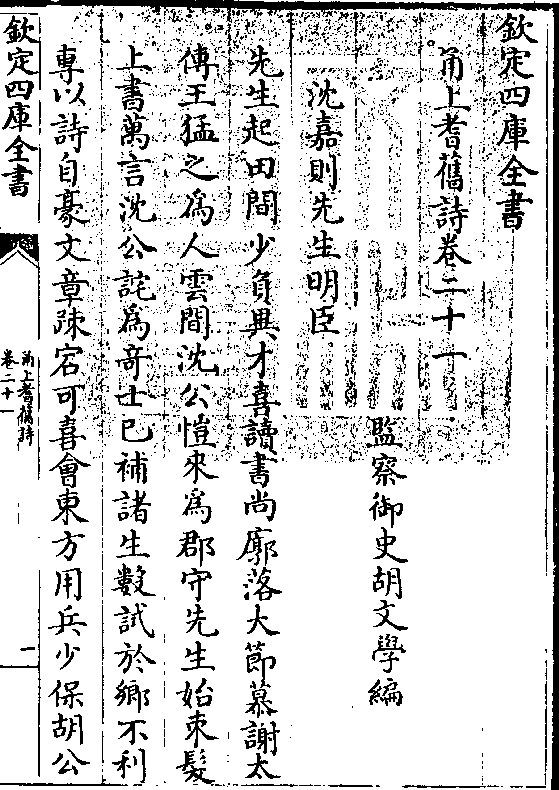 欽定四庫全書
甬上耆舊詩卷二十一
監察御史胡文學編
沈嘉則先生明臣
先生起田間少負異才喜讀書尚廓落大節慕謝太
傅王猛之為人雲間沈公愷來為郡守先生始束髮
上書萬言沈公詫為奇士已補諸生數試於鄉不利
專以詩自豪文章疎宕可喜會東方用兵少保胡公
欽定四庫全書
甬上耆舊詩
卷二十一
一